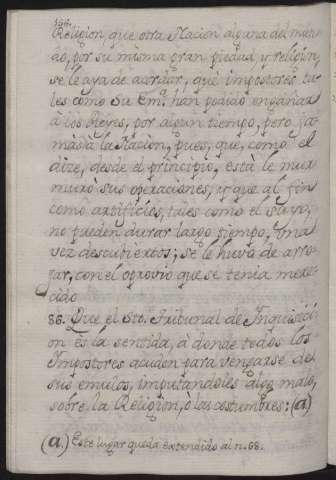 166.
Religion, que otra Nacion alguna del mun-
do, por su misma gran piedad, y religion,
se le aya de acordar, que impostores ta-
les como Su Em.ª han podido engañar
à los Reyes, por algun tiempo, pero ja-
màs à la Nacion, pues, que, como el
dize, desde el principio, està le mur-
murò sus operaciones, y que al fin
como artificios, tales como el suyo,
no pueden durar largo tiempo, una
vez descubiertos; se le huvo de arro-
jar, con el oprovio que se tenia mere-
cido.
86. Que el Sto. Tribunal de Inquisici-
on es la sentida, à donde todos los
Impostores acuden para vengarse del
sus emulos, imputandoles algo malo,
sobre la Religion, ò las costumbres: (a)
(a) Este lugar queda extendido al n. 68.